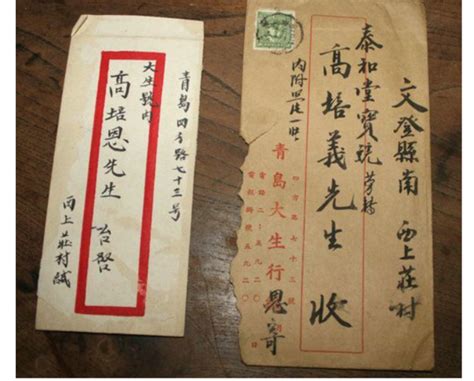 青島四方路七十三号
大生號内
高培恩先生 台啓
西上莊村緘
文登縣南 西上莊村
泰和堂寶號 勞轉
高培義先生 收
内附 一
青島大生行 恩寄